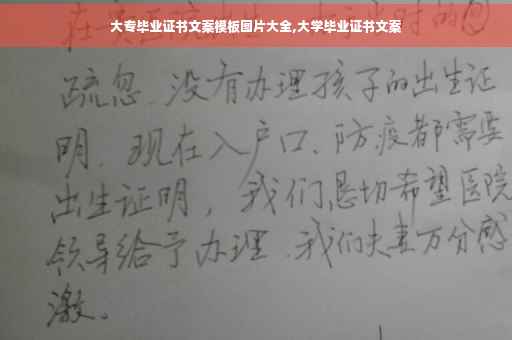 大专毕业证书文案模板图片大全,大学毕业证书文案
疏忽、没有办理孩子的出生证
明、现在入户口、防疫都需要
出生证明，我们恳切希望医院
领导给予办理、我们夫妻万分感
激。